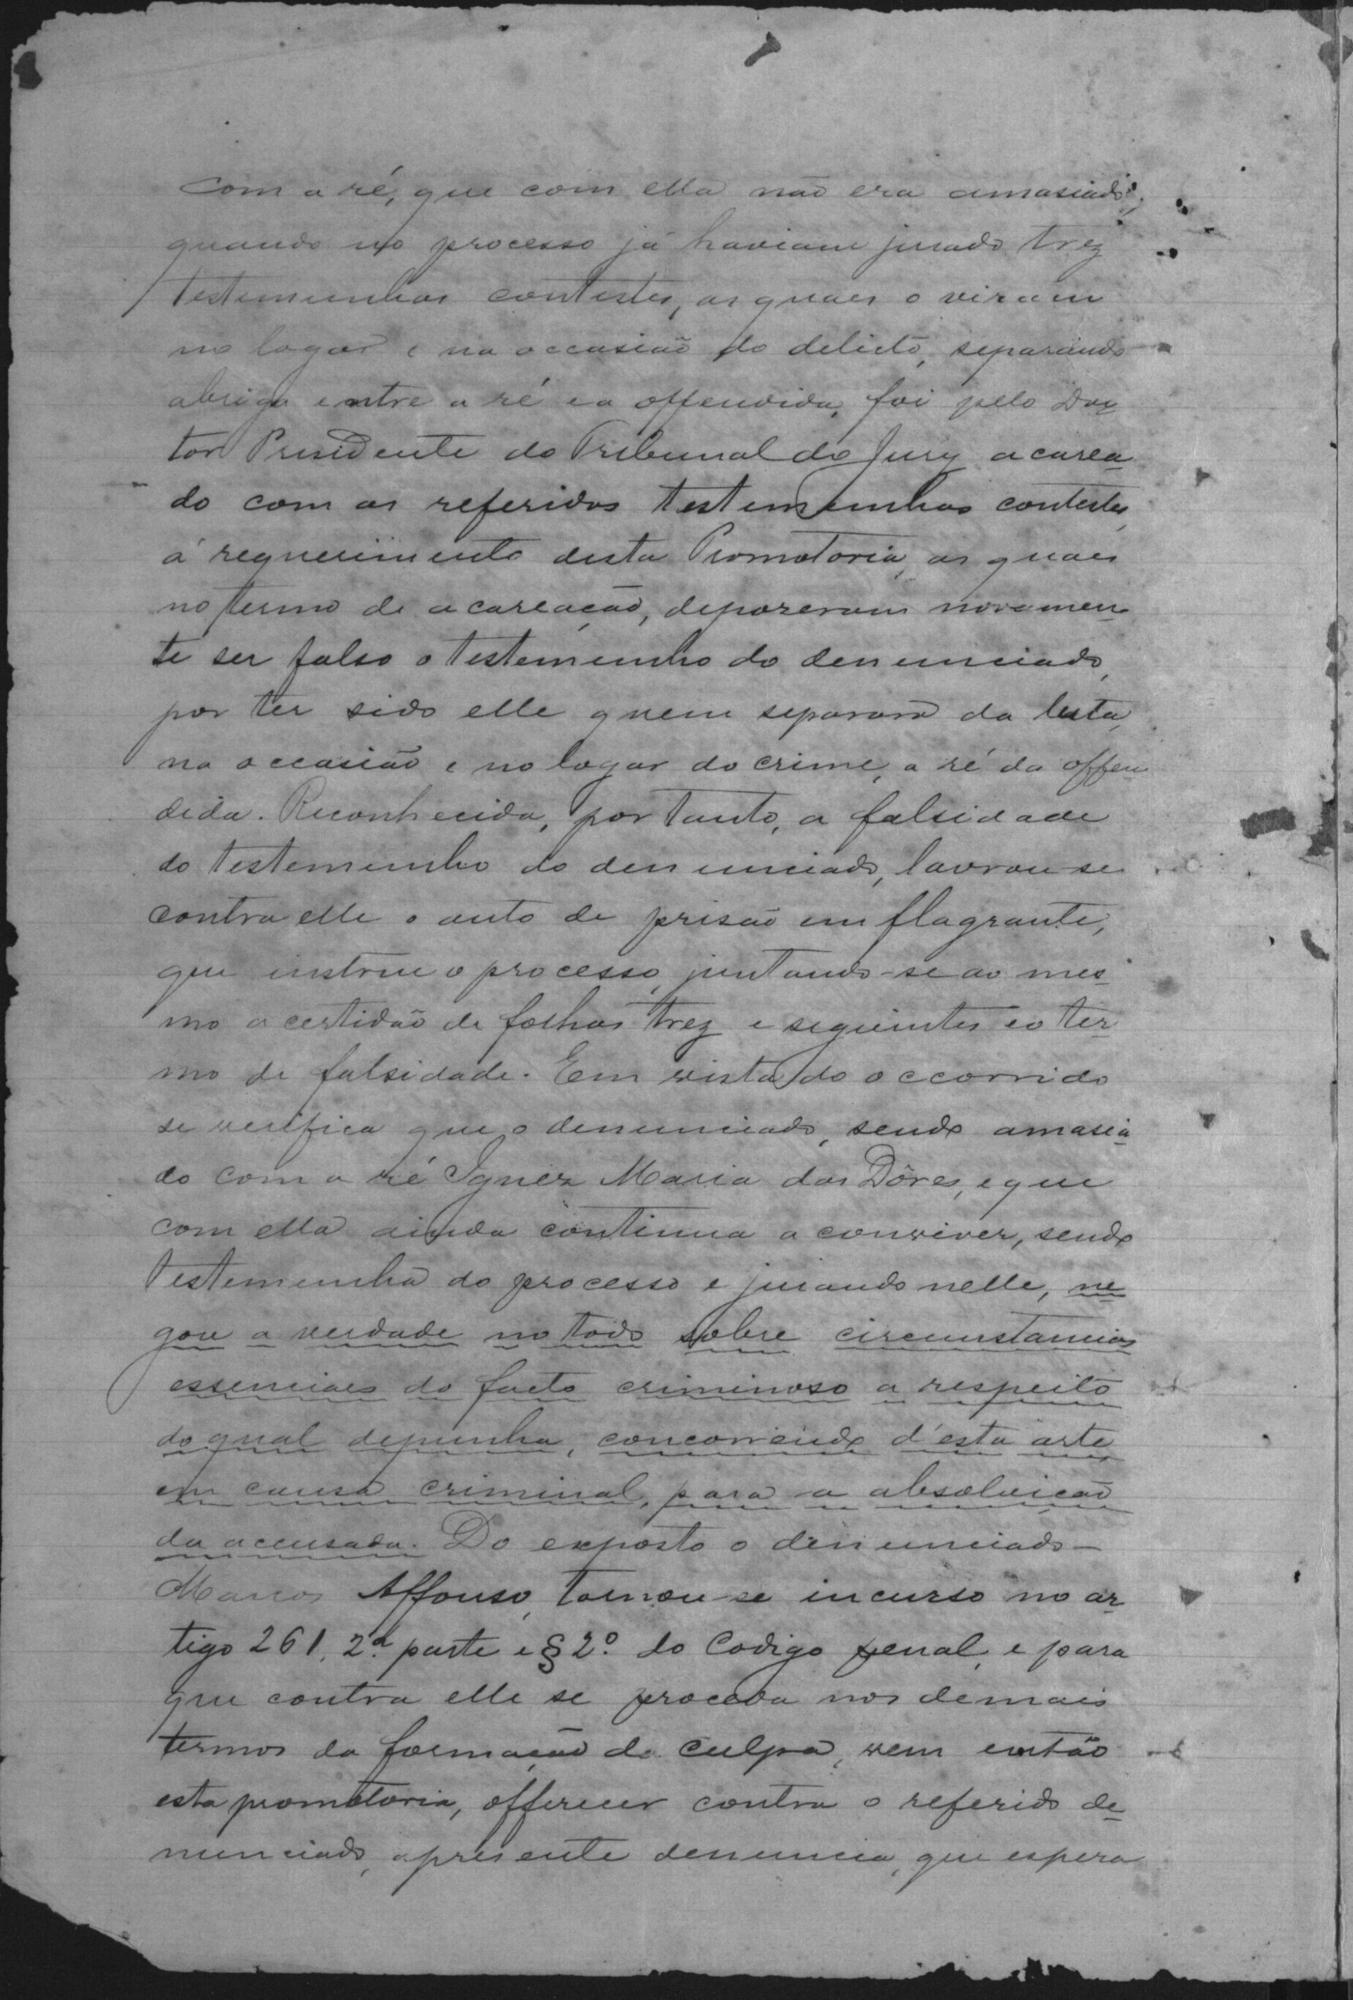 com a ré, que com ella não era amasiado,
quando no processo já haviam jurado trez
testemunhas contestes, as quaes o viram
no logar e na occasião do delicto, separando
abriga entre a ré e a offendida, foi pelo Dou
tor Presidente do Tribunal do Jury acarea
do com as referidas testemunhas contestes,
á requerimento desta Promotoria, as quaes
no termo de acareação, depozeram novamen
te ser falso o testemunho do denunciado,
por ter sido elle quem separara da lucta,
na occasião e no logar do crime, a ré da offen
dida. Reconhecida, portanto, a falsidade
do testemunho do denunciado, lavrou-se
contra elle o auto de prisão em flagrante,
que instrue o processo, juntando-se ao mes
mo a certidão de folhas trez e seguintes e o ter
mo de falsidade. Em vista do occorrido
se verifica que o denunciado, sendo amasia
do com a ré Ignez Maria das Dôres, e que
com ella ainda continua a conviver, sendo
testemunha do processo e jurando nelle, ne
gou a verdade no todo sobre circumstancias
essenciaes do facto criminoso a respeito
do qual depunha, concorrendo d'esta arte
em causa criminal, para a absolvição
da accusada. Do exposto o denunciado
Marcos Affonso, tornou-se incurso no ar
tigo 261, 2ª parte e § 2º do Codigo penal, e para
que contra elle se proceda nos demais
termos da formação da culpa, vem então
esta promotoria, offerecer contra o referido de
nunciado, apresente denuncia, que espera